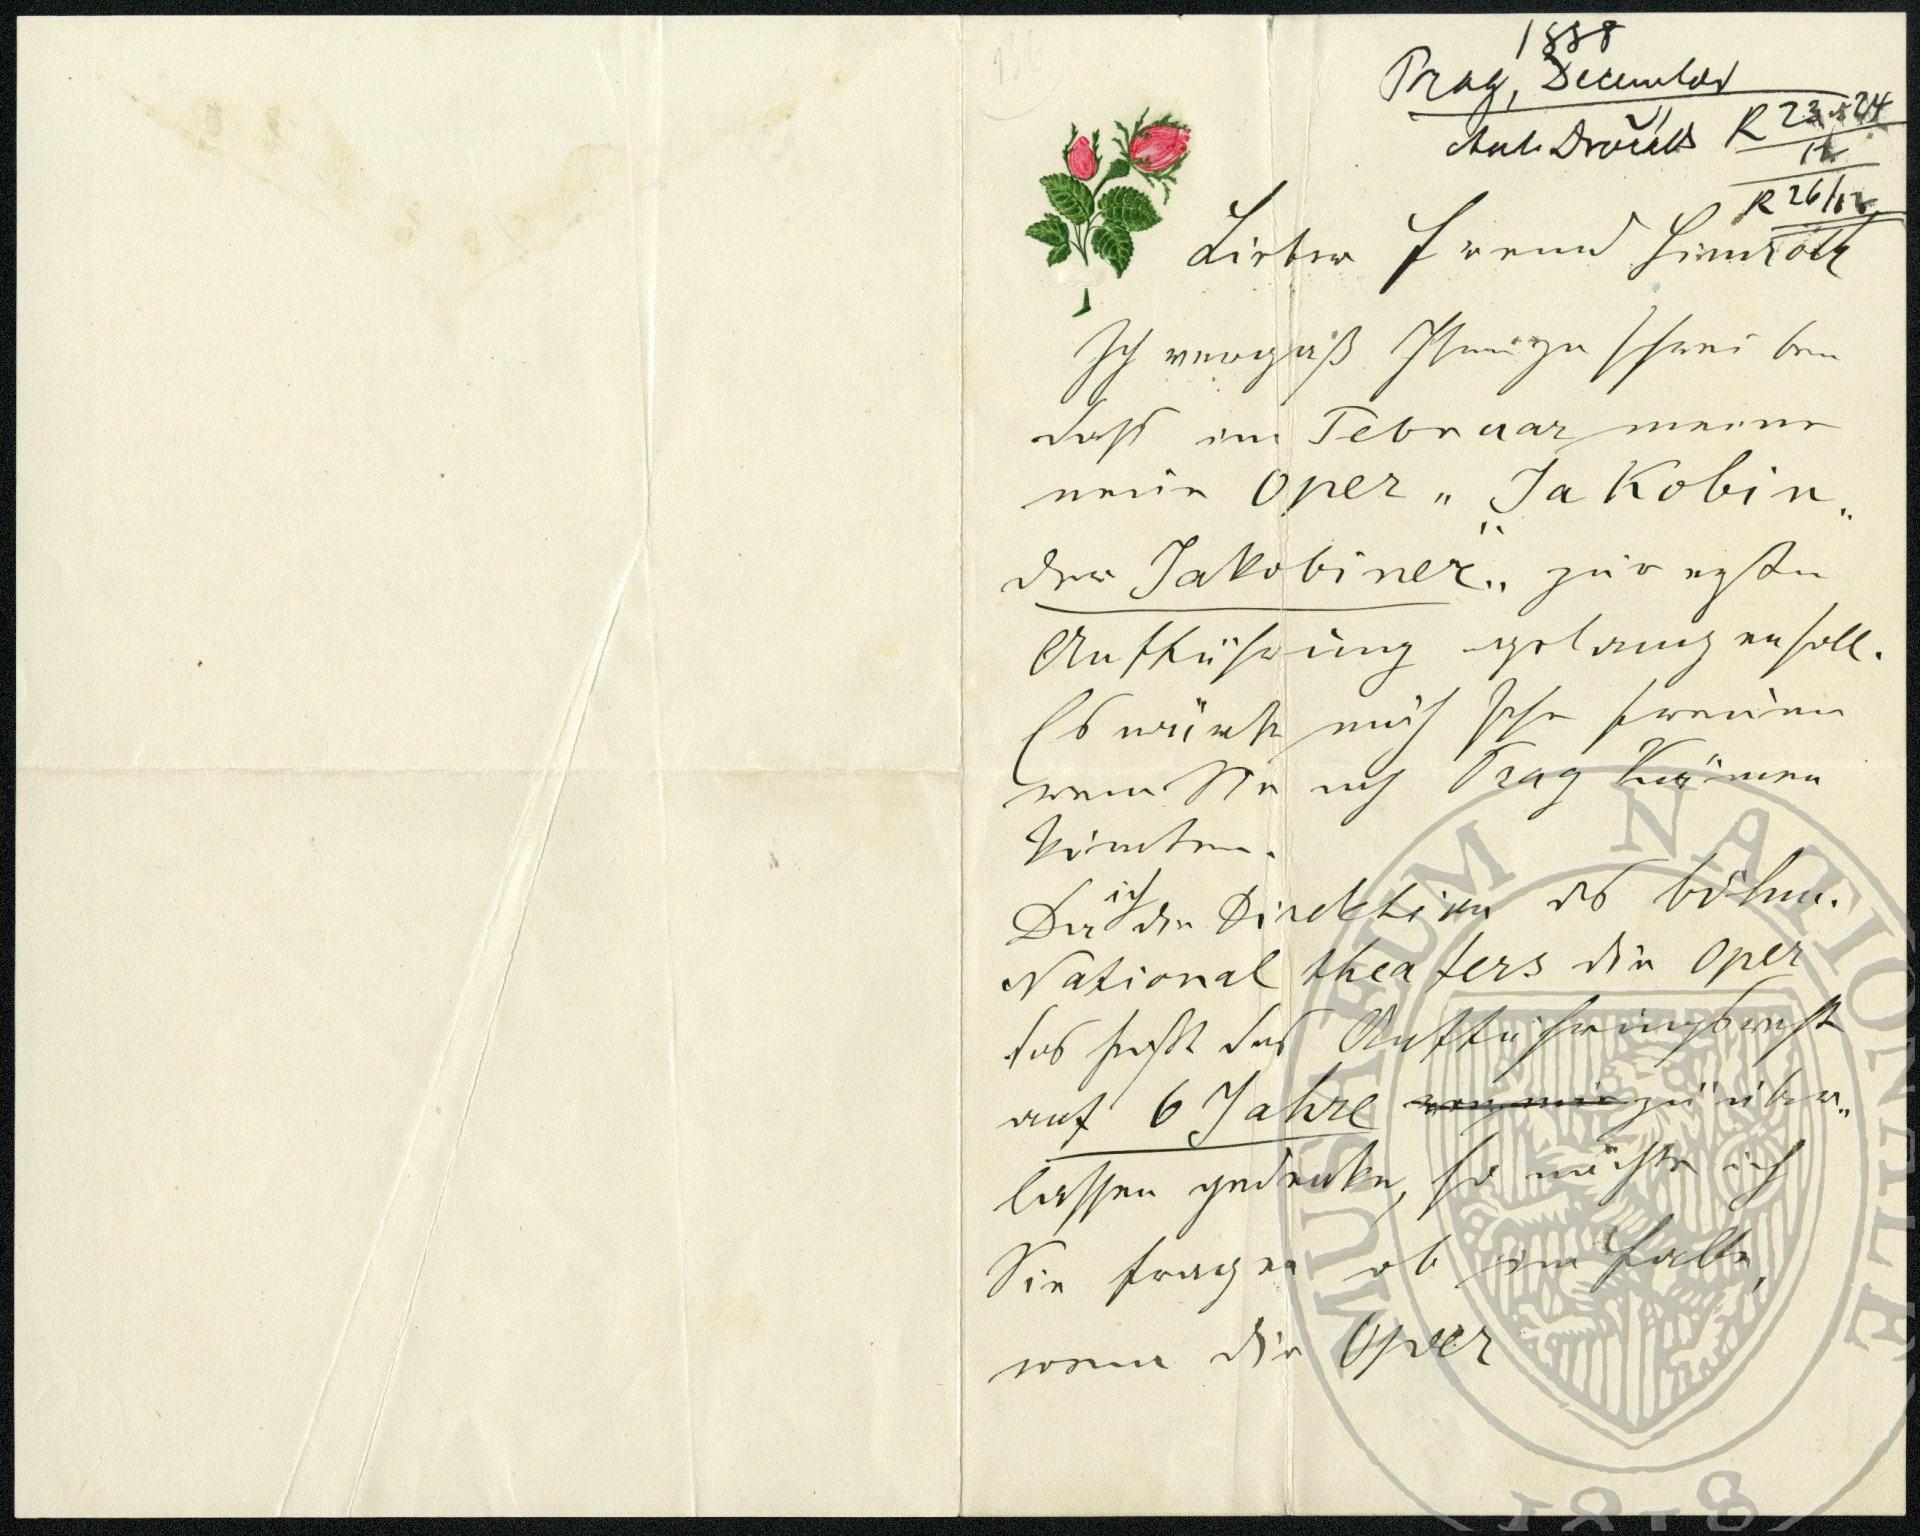 1888
Prag, December
Ant. Dvořák R 23 + 24
12
R 26/12
Lieber Freund Simrock
Ich vergaß Ihnen zu schreiben
daß im Februar meine
neue Oper „Jakobin„
„der Jakobiner„ zur ersten
Aufführung gelangen soll.
Es würde mich sehr freuen
wenn Sie nach Prag kommen
könnten.
Da ich der Direktion des böhm.
National theaters die Oper
das heißt das Aufführungsrecht
auf 6 Jahre von mir zu über„
lassen gedenke, so möchte ich
Sie fragen ob im Falle,
wenn die Oper
MUSAEUM NATIONALE
1818